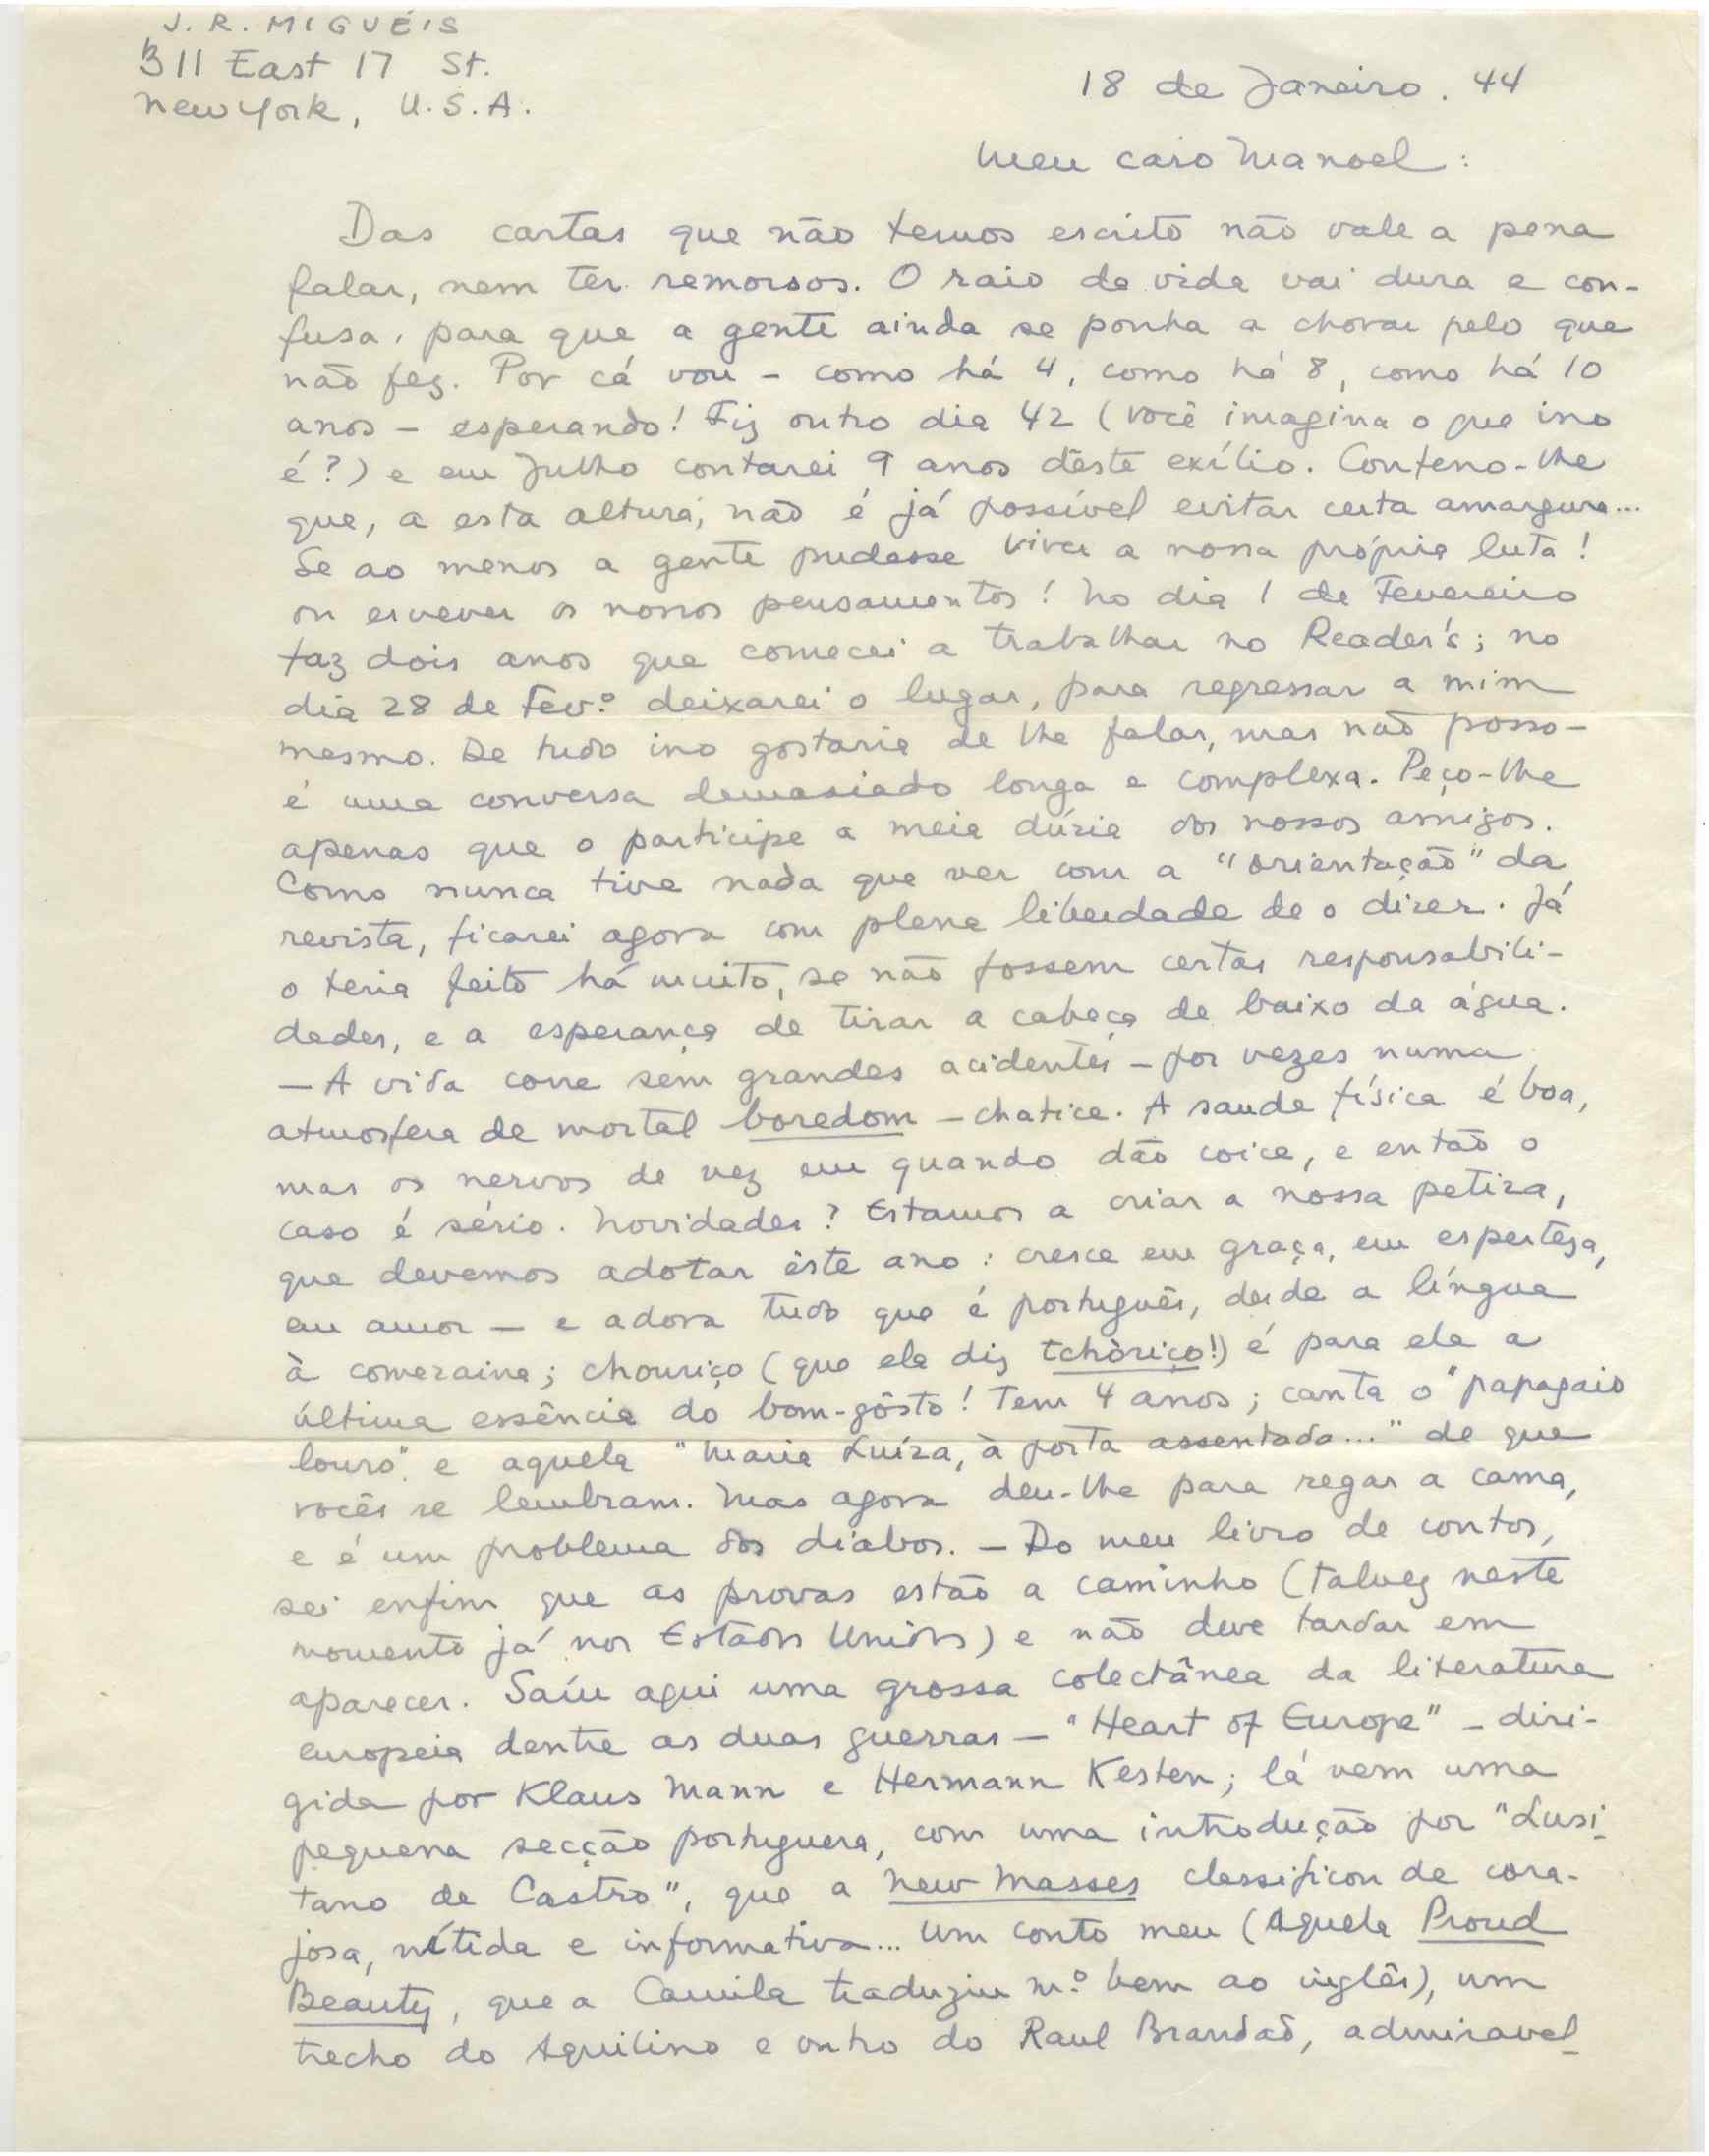 J. R. MIGUÉIS
311 East 17 St.
New York, U.S.A.
18 de Janeiro. 44
Meu caro Manoel:
Das cartas que não temos escrito não vale a pena
falar, nem ter remorsos. O raio da vida vai dura e con-
fusa, para que a gente ainda se ponha a chorar pelo que
não fez. Por cá vou – como há 4, como há 8, como há 10
anos – esperando! Fiz outro dia 42 (você imagina o que isso
é?) e em Julho contarei 9 anos dêste exílio. Confesso-lhe
que, a esta altura, não é já possível evitar certa amargura...
Se ao menos a gente pudesse viver a nossa própria luta!
ou escrever os nossos pensamentos! No dia 1 de Fevereiro
faz dois anos que comecei a trabalhar no Reader's; no
dia 28 de Fev.º deixarei o lugar, para regressar a mim
mesmo. De tudo isso gostaria de lhe falar, mas não posso –
é uma conversa demasiado longa e complexa. Peço-lhe
apenas que o participe a meia dúzia dos nossos amigos.
Como nunca tive nada que ver com a "orientação" da
revista, ficarei agora com plena liberdade de o dizer. Já
o teria feito há muito, se não fossem certas responsabili-
dades, e a esperança de tirar a cabeça de baixo da água.
– A vida corre sem grandes acidentes – por vezes numa
atmosfera de mortal boredom – chatice. A saude física é boa,
mas os nervos de vez em quando dão coice, e então o
caso é sério. Novidades? Estamos a criar a nossa petiza,
que devemos adotar êste ano: cresce em graça, em esperteza,
em amor – e adora tudo que é português, desde a língua
à comezaina; chouriço (que ela diz tchòriço!) é para ela a
última essência do bom-gôsto! Tem 4 anos; canta o "papagaio
louro" e aquela "Maria Luíza, à porta assentada..." de que
vocês se lembram. Mas agora deu-lhe para regar a cama,
e é um problema dos diabos. – Do meu livro de contos,
sei enfim que as provas estão a caminho (talvez neste
momento já nos Estados Unidos) e não deve tardar em
aparecer. Saíu aqui uma grossa colectânea da literatura
europeia dentre as duas guerras – "Heart of Europe" – diri-
gida por Klaus Mann e Hermann Kesten; lá vem uma
pequena secção portuguesa, com uma introdução por "Lusi-
tano de Castro", que a New Masses classificou de cora-
josa, nítida e informativa... Um conto meu (aquela Proud
Beauty, que a Camila traduziu m.º bem ao inglês), um
trecho do Aquilino e outro do Raul Brandão, admiravel-